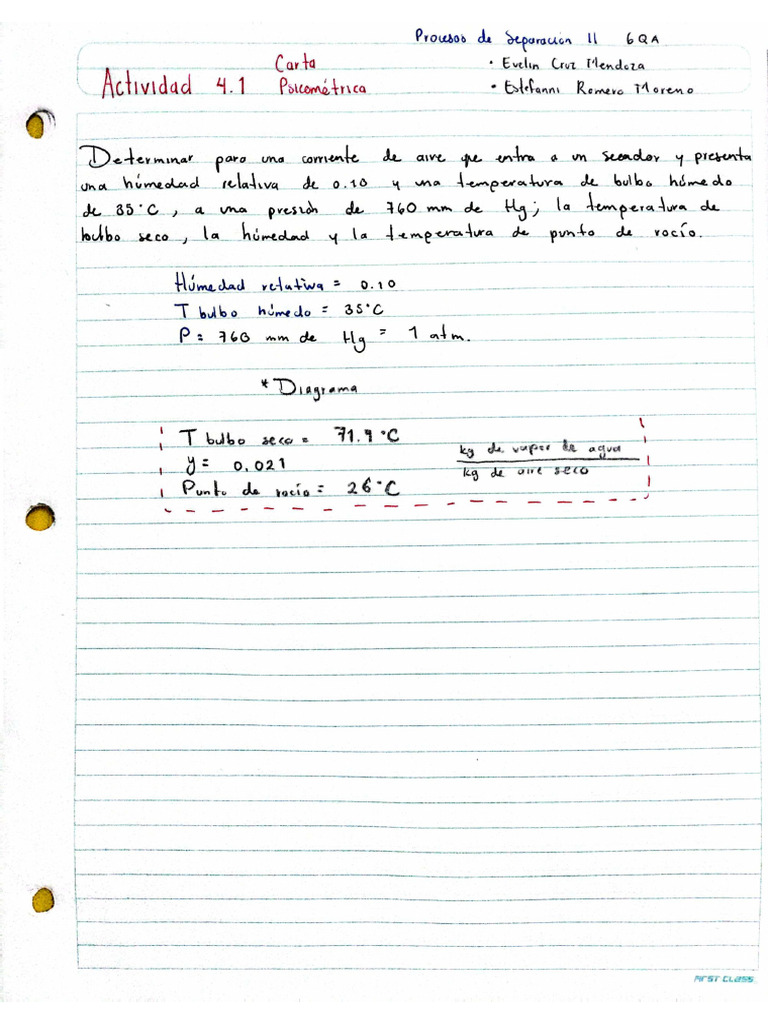 Procesos de Separacion II 6QA
Actividad 4.1 Carta Psicométrica
• Evelin Cruz Mendoza
• Estefanni Romero Moreno
Determinar para una corriente de aire que entra a un secador y presenta
una húmedad relativa de 0.10 y una temperatura de bulbo húmedo
de 35°C, a una presión de 760 mm de Hg; la temperatura de
bulbo seco, la húmedad y la temperatura de punto de rocío.
Húmedad relativa = 0.10
T bulbo húmedo = 35°C
P= 760 mm de Hg = 1 atm.
* Diagrama
T bulbo seco = 71.9 °C
y= 0,021 kg de vapor de agua
kg de aire seco
Punto de rocío = 26°C
FIRST CLASS